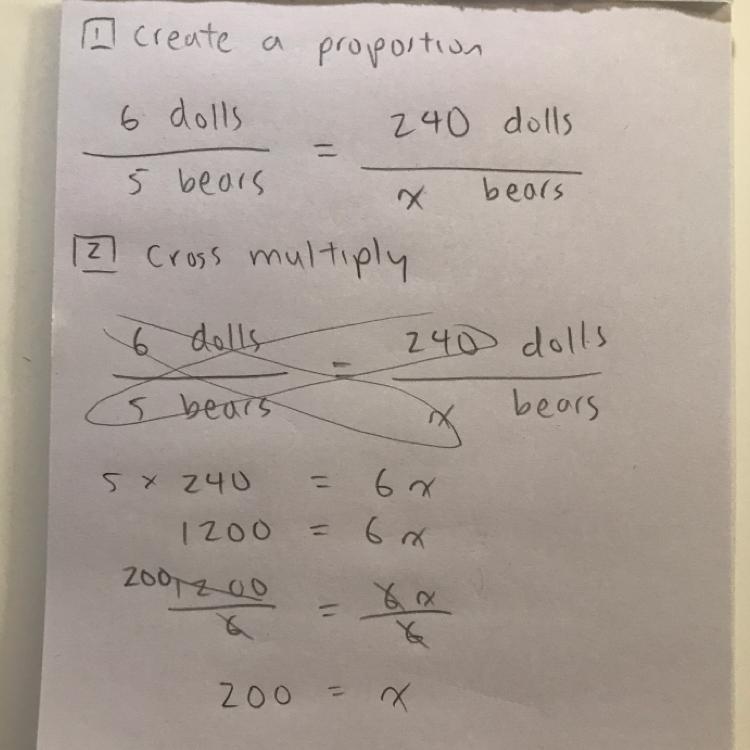 1 create a proportion
6 dolls / 5 bears = 240 dolls / x bears
2 cross multiply
6 dolls / 5 bears = 240 dolls / x bears
5 × 240 = 6x
1200 = 6x
200 1200 / 6 = 6x / 6
200 = x